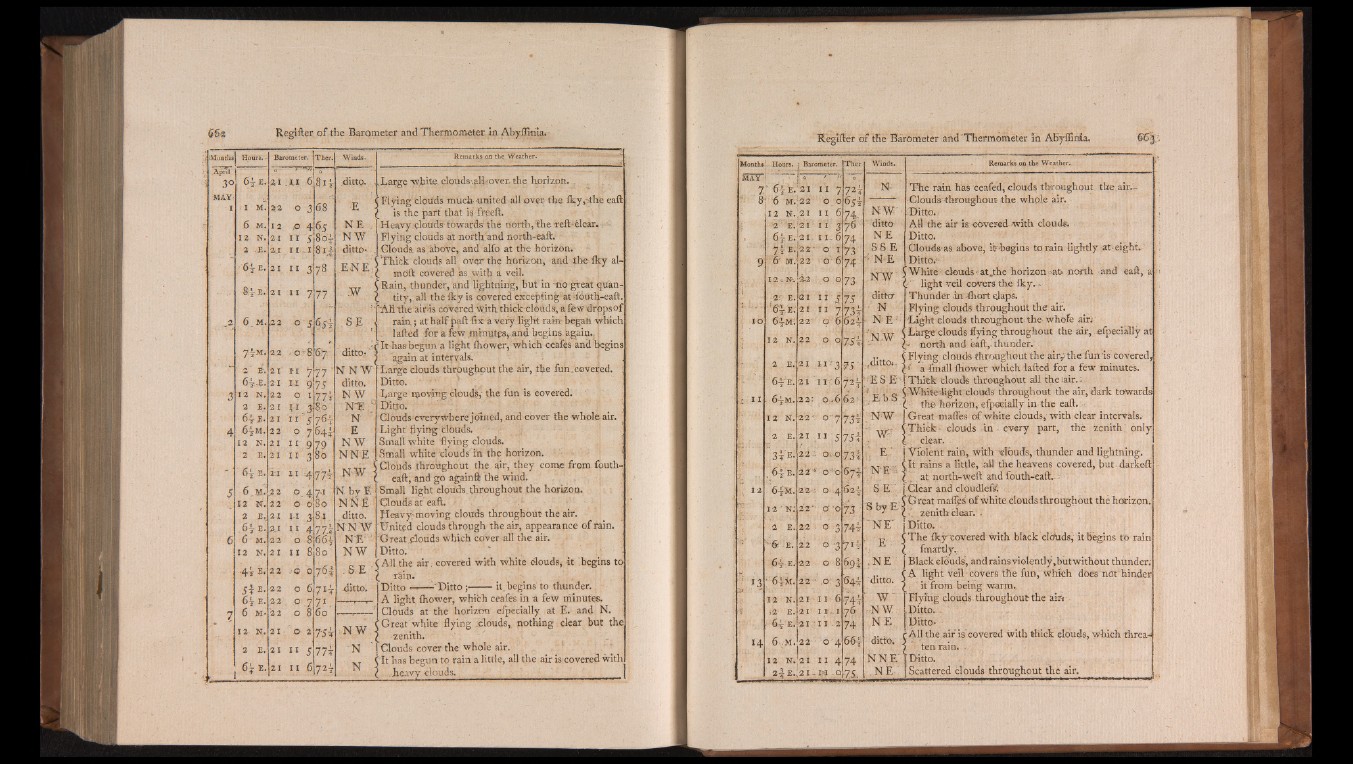 662 Regiſter of the Barometer and Thermometer in Abyſſinia.
Months Hours. Barometer. Ther. Winds. Remarks on the Weather.
April
30 6½ E. 21 11 6 81½ ditto. Large white clouds all over the horizon.
MAY
1 1 M. 22 0 3 68 E Flying clouds much united all over the ſky, the eaſt
is the part that is freeſt.
6 M. 12 0 4 65 N E Heavy clouds towards the north, the reſt clear.
12 N. 21 11 5 80½ N W Flying clouds at north and north-eaſt.
2 E. 21 11 1 81½ ditto. Clouds as above, and alſo at the horizon.
6½ E. 21 11 3 78 E N E Thick clouds all over the horizon, and the ſky al-
moſt covered as with a veil.
8½ E. 21 11 7 77 W Rain, thunder, and lightning, but in no great quan-
tity, all the ſky is covered excepting at ſouth-eaſt.
All the air is covered with thick clouds, a few drops of
2 6 M. 22 0 5 65½ S E rain; at half paſt ſix a very light rain began which
laſted for a few minutes, and begins again.
7½ M. 22 0 8 67 ditto. It has begun a light ſhower, which ceaſes and begins
again at intervals.
2 E. 21 11 7 77 N N W Large clouds throughout the air, the ſun covered.
6½ E. 21 11 9 75 ditto. Ditto.
3 12 N. 22 0 1 77½ N W Large moving clouds, the ſun is covered.
2 E. 21 11 3 80 N E Ditto.
6½ E. 21 11 5 76½ N Clouds everywhere joined, and cover the whole air.
4 6½ M. 22 0 7 64½ E Light flying clouds.
12 N. 21 11 9 79 N W Small white flying clouds.
2 E. 21 11 3 80 N N E Small white clouds in the horizon.
6½ E. 21 11 4 77½ N W Clouds throughout the air, they come from ſouth-
eaſt, and go againſt the wind.
5 6 M. 22 0 4 71 N by E Small light clouds throughout the horizon.
12 N. 22 0 0 80 N N E Clouds at eaſt.
2 E. 21 11 3 81 ditto. Heavy moving clouds throughout the air.
6½ E. 21 11 4 77½ N N W United clouds through the air, appearance of rain.
6 6 M. 22 0 8 66½ N E Great clouds which cover all the air.
12 N. 21 11 8 80 N W Ditto.
4½ E. 22 0 0 76½ S E All the air covered with white clouds, it begins to
rain.
5½ E. 22 0 6 71½ ditto. Ditto —— Ditto; —— it begins to thunder.
6½ E. 22 0 7 71 —— A light ſhower, which ceaſes in a few minutes.
7 6 M. 22 0 8 60 —— Clouds at the horizon eſpecially at E. and N.
12 N. 21 0 2 75½ N W Great white flying clouds, nothing clear but the
zenith.
2 E. 21 11 5 77½ N Clouds cover the whole air.
6½ E. 21 11 6 72½ N It has begun to rain a little, all the air is covered with
heavy clouds.
Regiſter of the Barometer and Thermometer in Abyſſinia. 663
Months Hours. Barometer. Ther Winds. Remarks on the Weather.
MAY
7 6½ E. 21 11 7 72½ N The rain has ceaſed, clouds throughout the air.
8 6 M. 22 0 0 65½ —— Clouds throughout the whole air.
12 N. 21 11 6 74 N W Ditto.
2 E. 21 11 3 76 ditto All the air is covered with clouds.
6½ E. 21 11 6 74 N E Ditto.
7½ E. 22 0 1 73 S S E Clouds as above, it begins to rain lightly at eight.
9 6 M. 22 0 6 74 N E Ditto.
12 N. 22 0 0 73 N W White clouds at the horizon at north and eaſt, a
light veil covers the ſky.
2 E. 21 11 5 75 ditto Thunder in ſhort claps.
6½ E. 21 11 7 73½ N Flying clouds throughout the air.
10 6½ M. 22 0 6 62½ N E Light clouds throughout the whole air.
12 N. 22 0 0 75½ N W Large clouds flying throughout the air, eſpecially at
north and eaſt, thunder.
2 E. 21 11 3 75 ditto. Flying clouds throughout the air, the ſun is covered,
a ſmall ſhower which laſted for a few minutes.
6½ E. 21 11 6 72½ E S E Thick clouds throughout all the air.
11 6½ M. 22 0 6 62 E b S White light clouds throughout the air, dark towards
the horizon, eſpecially in the eaſt.
12 N. 22 0 7 73½ N W Great maſſes of white clouds, with clear intervals.
2 E. 21 11 5 75½ W Thick clouds in every part, the zenith only
clear.
3½ E. 22 0 0 73½ E Violent rain, with clouds, thunder and lightning.
6½ E. 22 0 0 67½ N E It rains a little, all the heavens covered, but darkeſt
at north-weſt and ſouth-eaſt.
12 6½ M. 22 0 4 62½ S E Clear and cloudleſs.
12 N. 22 0 0 73 S by E Great maſſes of white clouds throughout the horizon,
zenith clear.
2 E. 22 0 3 74½ N E Ditto.
6 E. 22 0 3 71½ E The ſky covered with black clouds, it begins to rain
ſmartly.
6½ E. 22 0 8 69½ N E Black clouds, and rains violently, but without thunder.
13 6½ M. 22 0 3 64½ ditto. A light veil covers the ſun, which does not hinder
it from being warm.
12 N. 21 11 6 74½ W Flying clouds throughout the air.
2 E. 21 11 1 76 N W Ditto.
6½ E. 21 11 2 74 N E Ditto.
14 6 M. 22 0 4 66½ ditto. All the air is covered with thick clouds, which threa-
ten rain.
12 N. 21 11 4 74 N N E Ditto.
2¾ E. 21 11 0 75 N E Scattered clouds throughout the air.